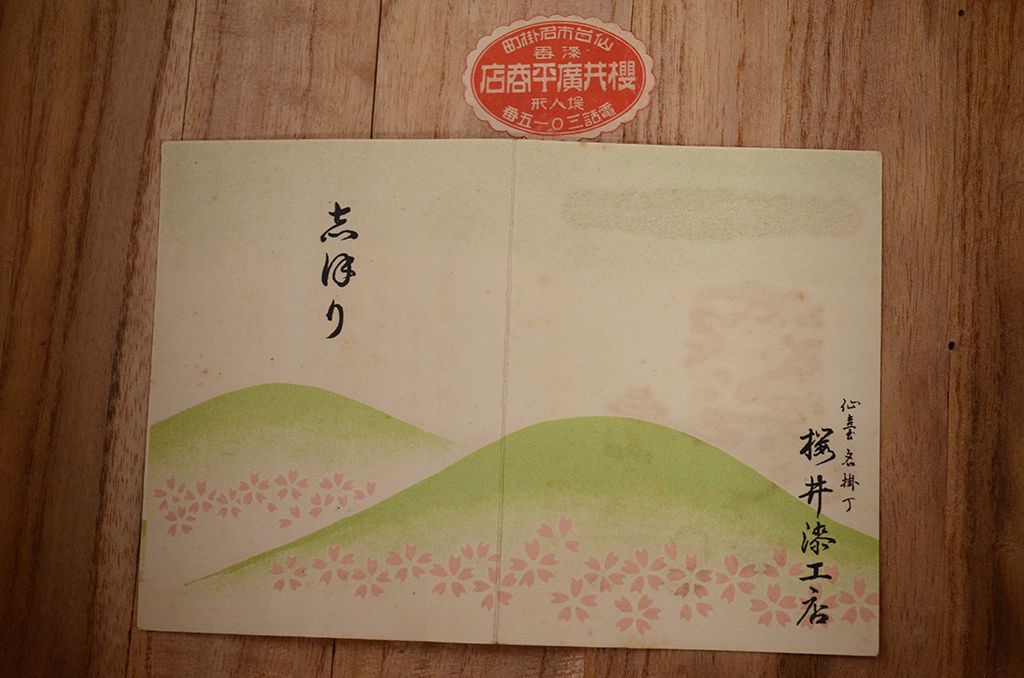 仙台市名掛町
漆器
櫻井廣平商店
堤人形
電話三〇一五番
志ほり
仙臺 名掛丁
桜井漆工店